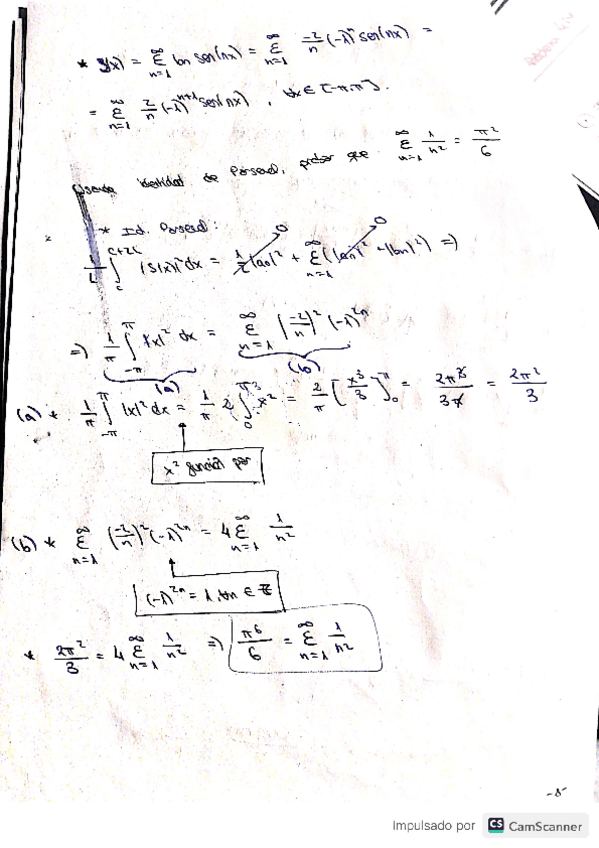 * f(x) = Σ_{n=1}^{∞} bn sen(nx) = Σ_{n=1}^{∞} -2/n (-1)^n sen(nx) =
= Σ_{n=1}^{∞} 2/n (-1)^{n+1} sen(nx), ∀x ∈ [-π,π].
identidad de Parseval, probar que Σ_{n=1}^{∞} 1/n² = π²/6
* Id. Parseval:
1/L ∫_{c}^{c+2L} |f(x)|² dx = 1/2 |a0|² + Σ_{n=1}^{∞} (|an|² + |bn|²) =>
0 0
=> 1/π ∫_{-π}^{π} |x|² dx = Σ_{n=1}^{∞} (-2/n)² (-1)^{2n}
(a) (b)
(a) * 1/π ∫_{-π}^{π} |x|² dx = 1/π 2 ∫_{0}^{π} x² = 2/π [x³/3]_0^π = 2π³/3π = 2π²/3
x² función par
(b) * Σ_{n=1}^{∞} (-2/n)² (-1)^{2n} = 4 Σ_{n=1}^{∞} 1/n²
(-1)^{2n} = 1 ∀n ∈ ℤ
* 2π²/3 = 4 Σ_{n=1}^{∞} 1/n² => π⁶/6 = Σ_{n=1}^{∞} 1/n²
Impulsado por CS CamScanner